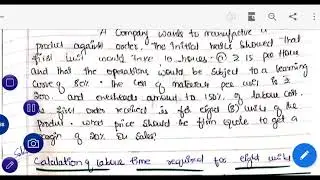 A Company wants to manufacture a
product against order. The Initial batch showed that
first unit would take 10 hours @ 2 15 per Hour
and that the operations would be subject to a learning
Curve of 80%. The Cost of materials per unit is 2
200 and overheads amount to 150% of labour cost.
first order received is for eight (8) units of the
product. what price should be firm quote to get a
margin of 20% on sales?
Calculation of labour time required for eight units